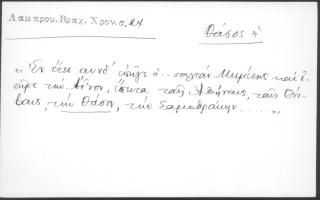 Λαμπρου, Βραχ. Χρον. σ. 24
Θάσος 3
"Ἐν ἔτει ͵αυνδ' ἐπῆγε ὁ.. σουλτὰν Μεμέτης καὶ ἐ-
πῆρε τὴν Αἶνον, ἔπειτα τὰς Ἀθήνας, τὰς Θή-
βας, τὴν Θάσον, τὴν Σαμοθράκην........"